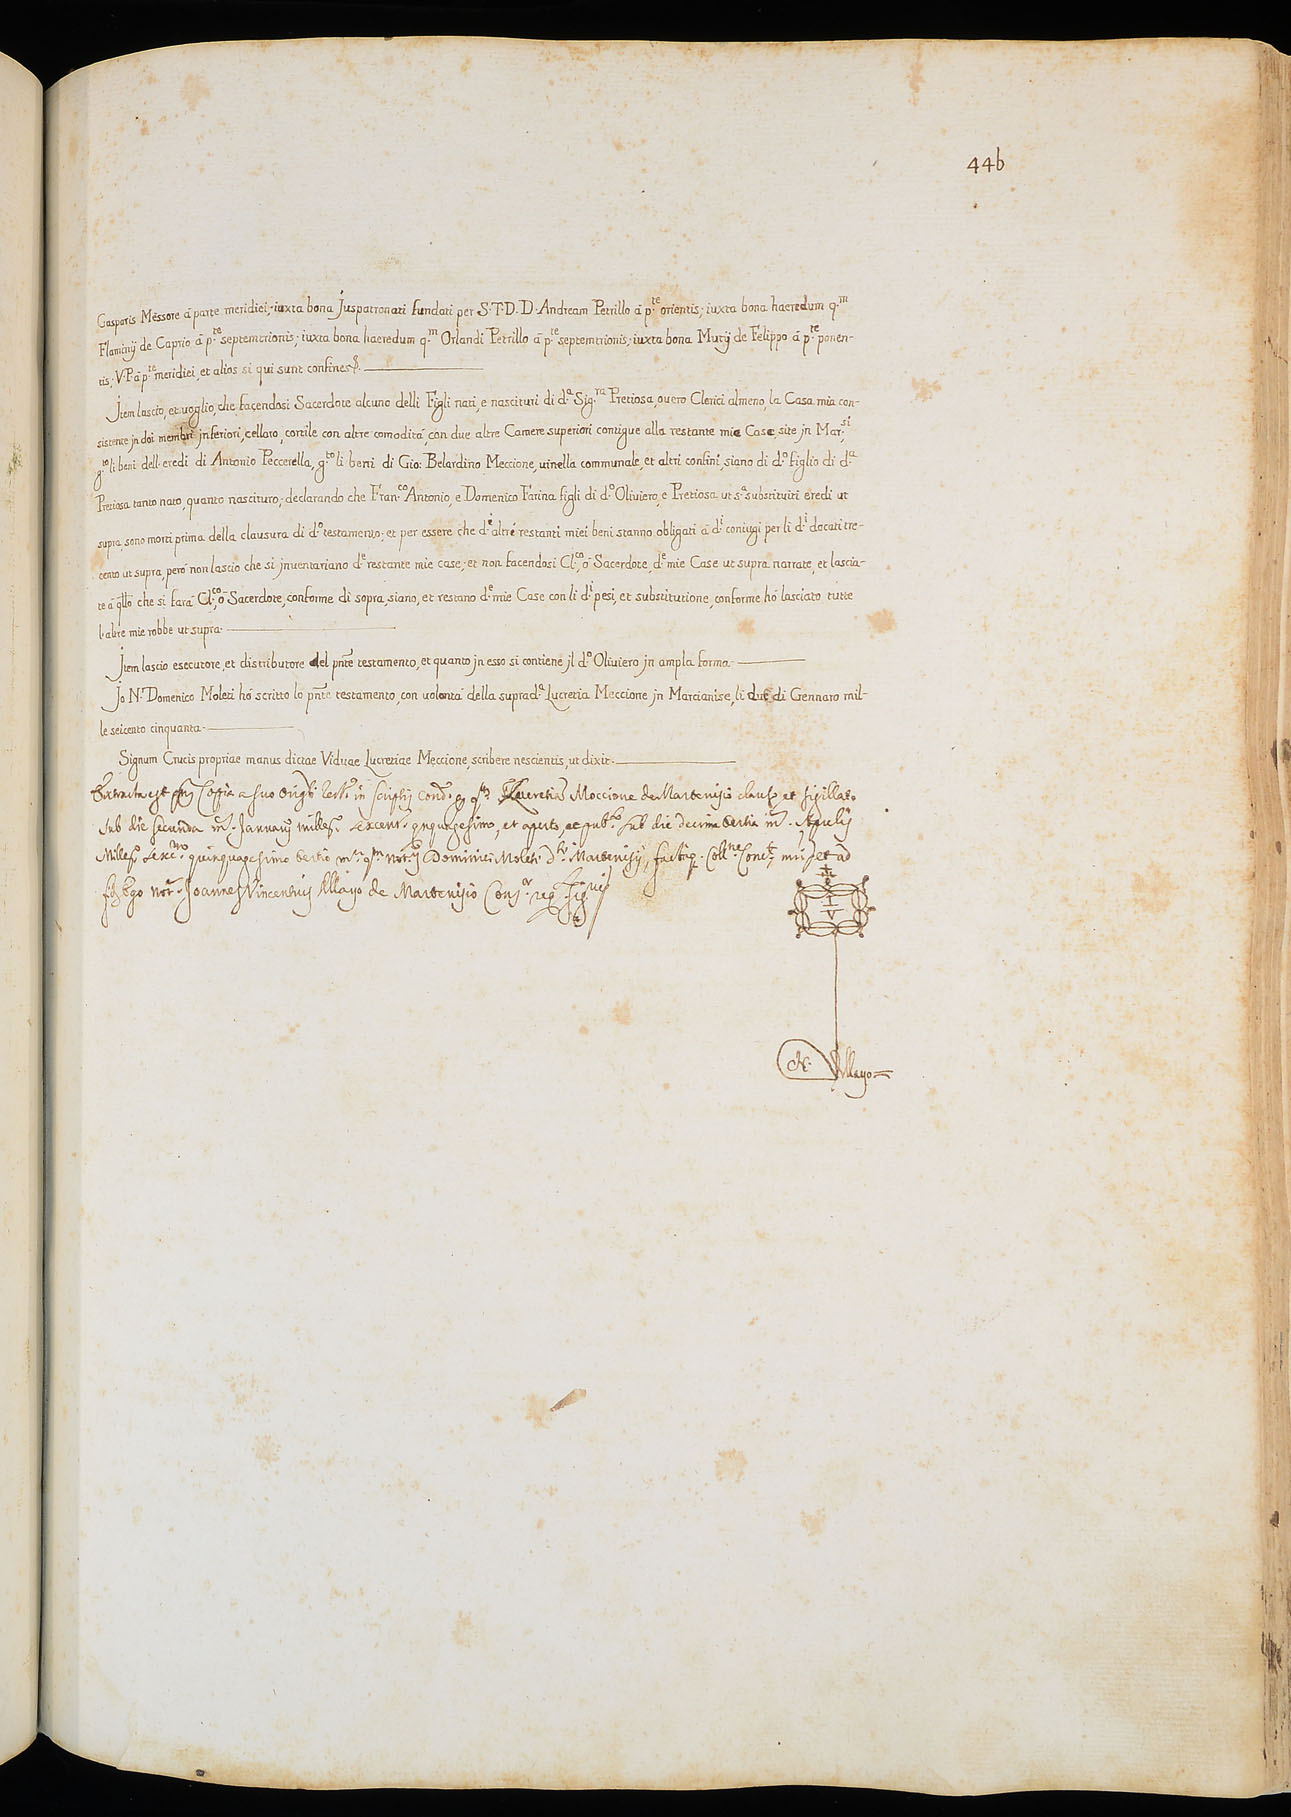 44b
Gasparis Messore á parte meridiei; iuxta bona Juspatronati fundati per S.T.D.D. Andream Petrillo á p.te orientis; iuxta bona haeredum q.m
Flaminij de Caprio á p.te septemtrionis; iuxta bona haeredum q.m Orlandi Petrillo á p.te septemtrionis; iuxta bona Mutij de Felippo á p.te ponen-
tis; V.P. á p.te meridiei, et alios si qui sunt confines
Jtem lascio, et uoglio, che facendosi Sacerdote alcuno delli Figli nati, e nascituri di d.a Sig.ra Pretiosa, ouero Clerici almeno, la Casa mia con-
sistente jn doi membri jnferiori, cellaro, cortile con altre comoditá, con due altre Camere superiori contigue alla restante mie Case site jn Mar.si
g.to li beni dell'eredi di Antonio Peccerella, g.to li beni di Gio: Belardino Meccione, uinella communale, et altri confini, siano di d.o figlio di d.a
Pretiosa tanto nato, quanto nascituro; declarando che Fran.co Antonio, e Domenico Farina figli di d.o Oliviero, e Pretiosa ut s.a substituiti eredi ut
supra, sono morti prima della clausura di d.o testamento; et per essere che d.i altri restanti miei beni stanno obligati á d.i coniugi per li d.i docati tre-
cento ut supra, peró non lascio che si jnventariano d.e restante mie case; et non facendosi Cl.co, ó Sacerdote, d.e mie Case ut supra narrate, et lascia-
te á qllo che si fará Cl.co, ó Sacerdote, conforme di sopra, siano, et restano d.e mie Case con li d.i pesi, et substitutione, conforme hó lasciato tutte
l'altre mie robbe ut supra.
Jtem lascio esecutore, et distributore del pnte testamento, et quanto jn esso si contiene jl d.o Oliviero jn ampla forma.
Jo N.r Domenico Moleti hó scritto lo pnte testamento, con uolontá della suprad.a Lucretia Meccione jn Marcianise, li due di Gennaro mil-
le seicento cinquanta.
Signum Crucis propriae manus dictae Viduae Lucretiae Meccione, scribere nescientis, ut dixit.
Extracta est Copia a suo in scriptis Lucretia Moccione de Martenisio claus. et sigillat.
sub die secunda m.s Januarij milles.o sexcent.o qnquagesimo, et aperto, et pub.to sub die decima tertia m.s Aprilis
Milles.o sexc.mo quinquagesimo tertio m.s q.m not.rij Dominici Moleti d.i Martenisij, Coll.ne et ad
Ego not.r Joannes Vincentius Allayo de Martenisio
I
V
N. Allayo